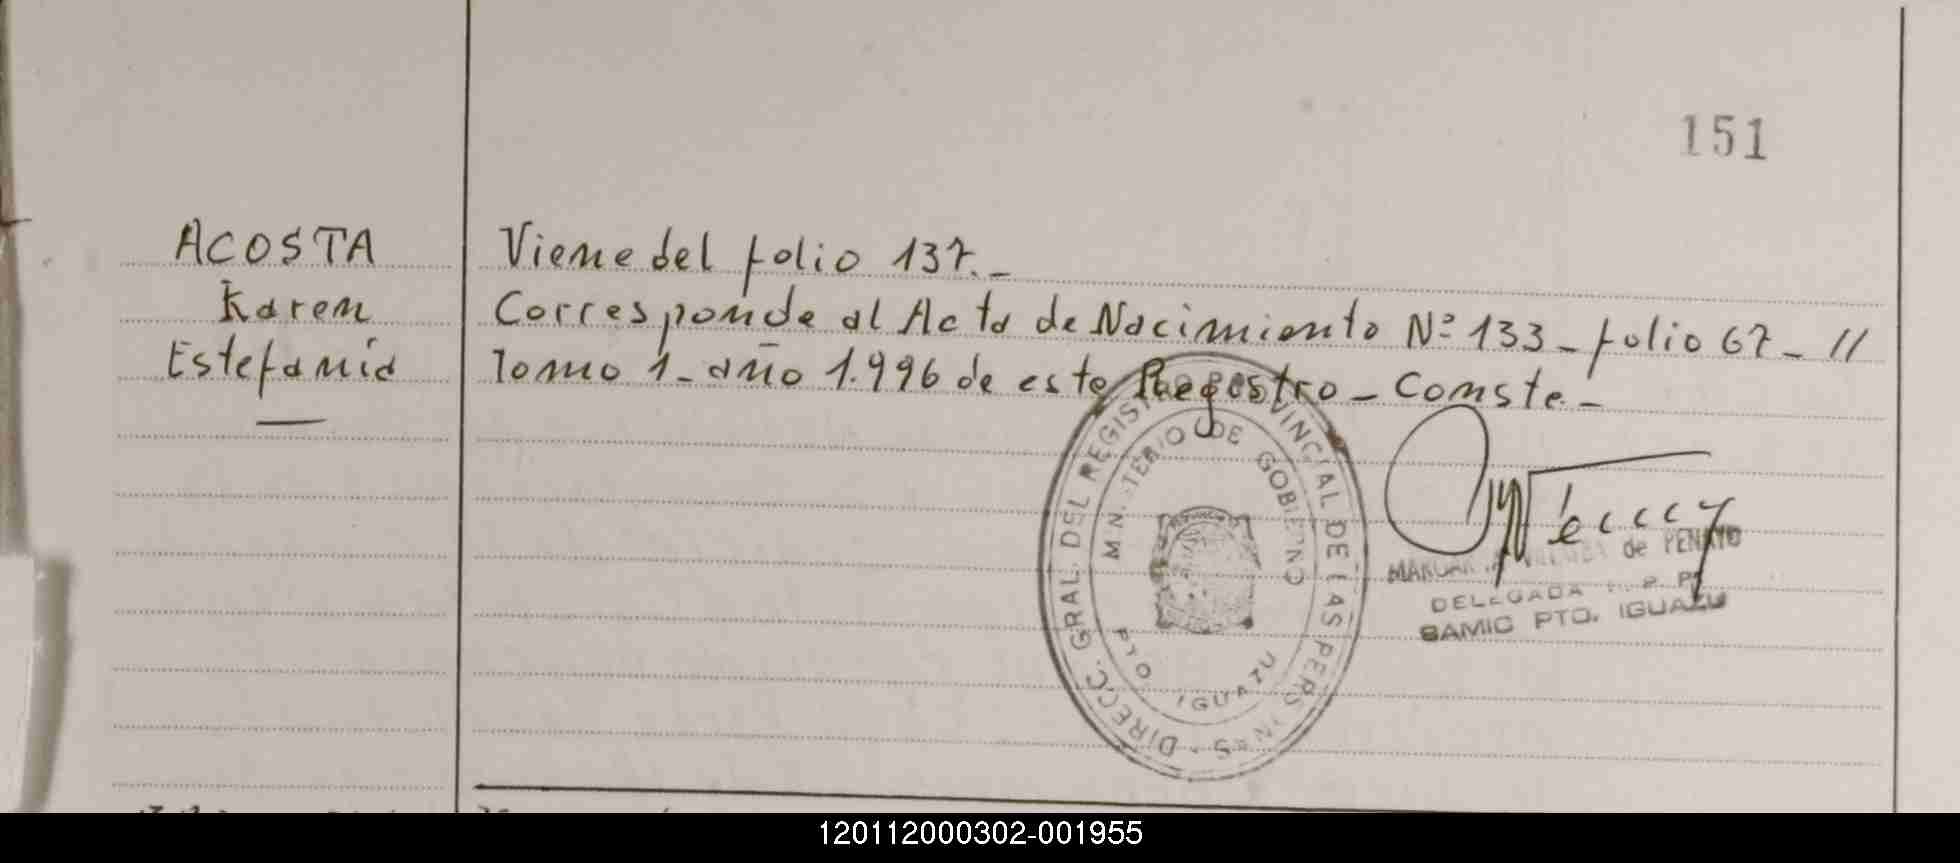 151
ACOSTA
Karen
Estefania
Viene del folio 137.-
Corresponde al Acta de Nacimiento Nº 133 - folio 67 - //
Tomo 1 - año 1.996 de este Registro - Conste.-
DIRECC. GRAL. DEL REGIST. PROVINCIAL DE LAS PERSONAS
MINISTERIO DE GOBIERNO
PTO. IGUAZU
de PENAYO
DELEGADA R. P. P.
SAMIC PTO. IGUAZU
120112000302-001955